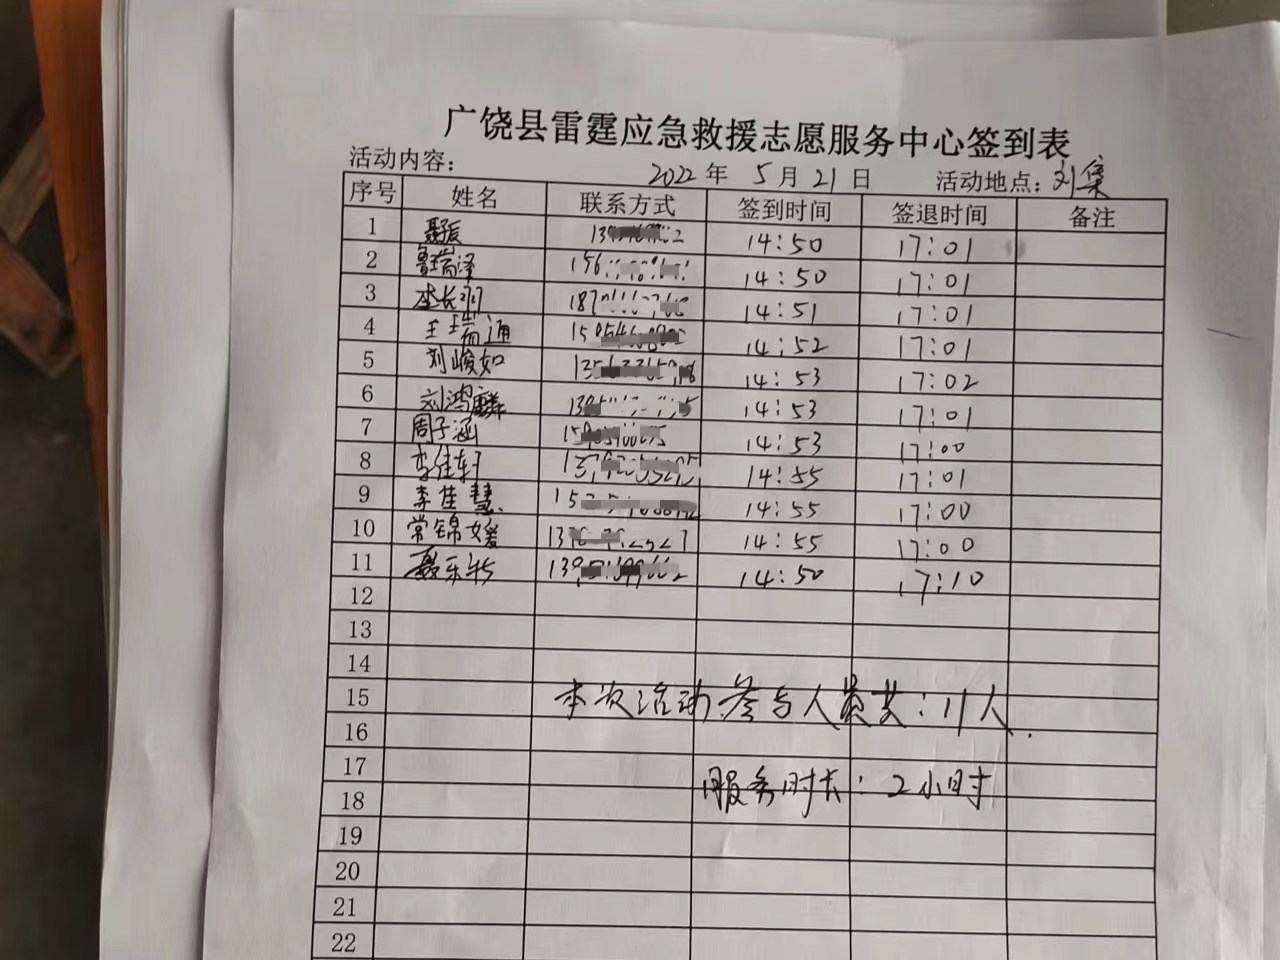 广饶县雷霆应急救援志愿服务中心签到表
活动内容： 2022年 5月21日 活动地点：刘集
序号 姓名 联系方式 签到时间 签退时间 备注
1 14:50 17:01
2 鲁瑞泽 14:50 17:01
3 14:51 17:01
4 王瑞通 14:52 17:01
5 刘峻如 14:53 17:02
6 刘鸿麟 14:53 17:01
7 周子涵 14:53 17:00
8 李佳轩 14:55 17:01
9 李佳慧 14:55 17:00
10 常锦媛 14:55 17:00
11 14:50 17:10
12
13
14
15 本次活动参与人员共：11人.
16
17 服务时长：2小时
18
19
20
21
22